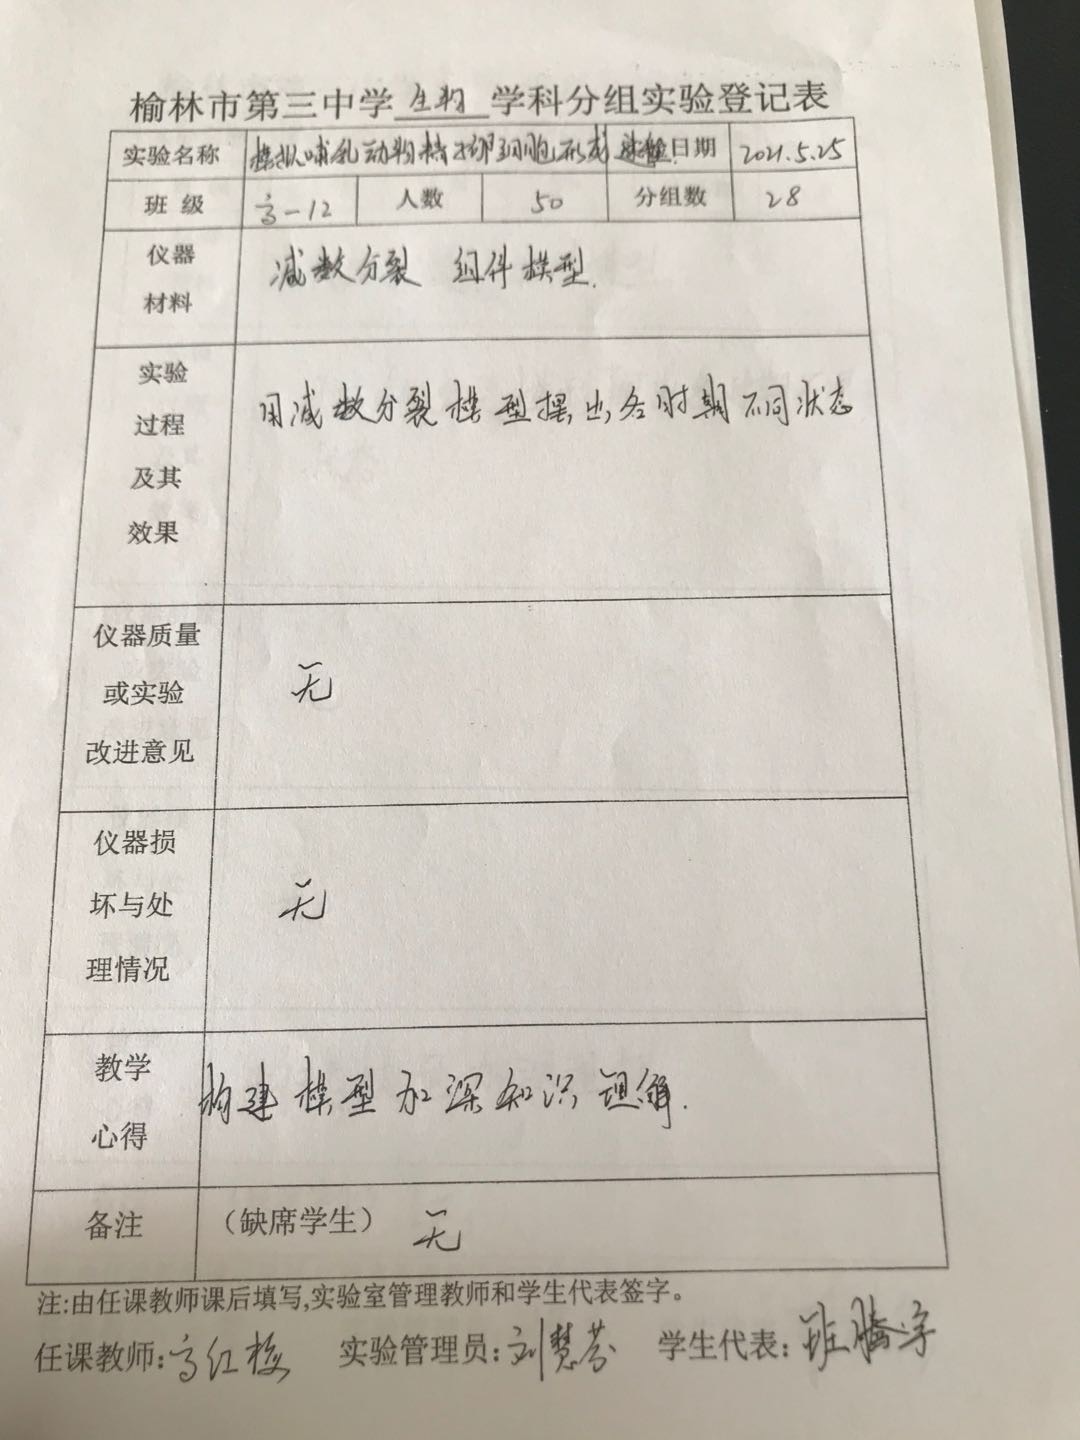 榆林市第三中学 生物 学科分组实验登记表
实验名称 模拟哺乳动物精子卵细胞形成过程 日期 2021.5.25
班级 高一12 人数 50 分组数 28
仪器
材料
减数分裂 组件模型.
实验
过程
及其
效果
用减数分裂模型摆出各时期不同状态
仪器质量
或实验
改进意见
无
仪器损
坏与处
理情况
无
教学
心得
构建模型加深知识理解.
备注 (缺席学生) 无
注:由任课教师课后填写,实验室管理教师和学生代表签字。
任课教师:高红 实验管理员:刘慧芬 学生代表:班腾宇